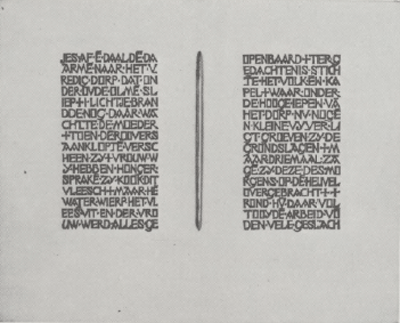 JES·AF·E·DAALDE·DA
ARME·NAAR·HET·V
REDIG·DORP·DAT·ON
DER·OVDE·OLME·SL
IEP·†·I·LICHTJE·BRAN
DDE·NOG·DAAR·WA
CHTTE·DE·MOEDER
†·TOEN·DE·ROVERS
AANKLOPTE·VERSC
HEEN·ZY·†·VROUW·W
Y·HEBBEN·HONGER·
SPRAKE·ZY·KOOK·DIT
VLEESCH·†·MAAR·HE
WATER·WIERP·HET·VL
EES·VIT·EN·DER·VRO
UW·WERD·ALLES·GE
OPENBAARD·†·TER·G
EDACHTENIS·STICH
TE·HET·VOLK·EN·KA
PEL·†·WAAR·ONDER·
DE·HOOGE·IEPEN·VA
HET·DORP·NV·NOG·E
N·KLEINE·VYVER·LI
GT·GROEVEN·ZY·DE
GRONDSLAGEN·†·M
AAR·DRIEMAAL·ZA
GE·ZY·DEZE·DES·MO
RGENS·OP·DE·HEUVEL
OVERGEBRACHT·†·†
ROND·HY·DAAR·VOL
TOID·DE·ARBEID·VO
DEN·VELE·GESLACH